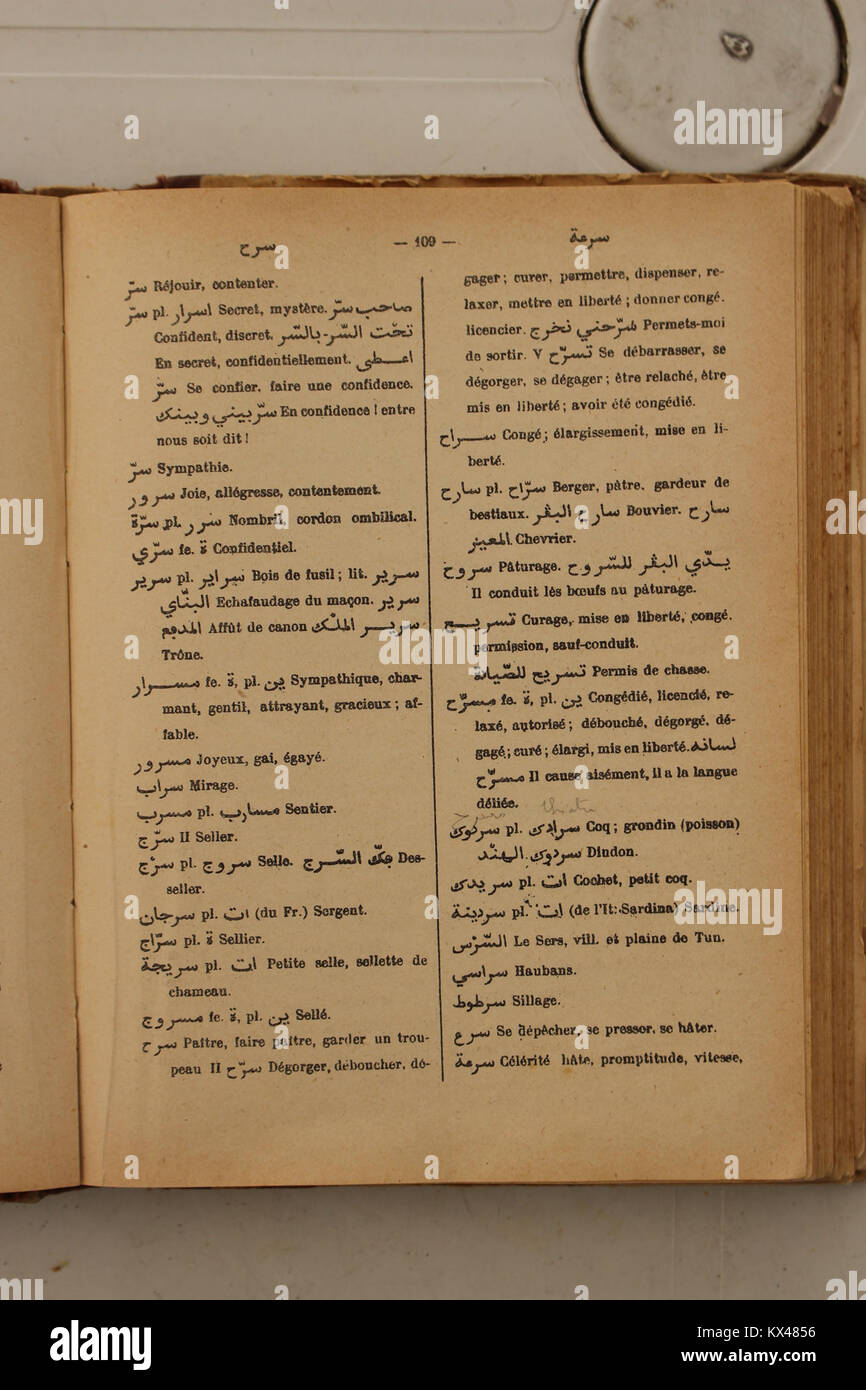 سرح — 109 — سرعة
سرّ Réjouir, contenter.
سرّ pl. اسرار Secret, mystère. صاحب سرّ
Confident, discret. تحت السّر - بالسّر
En secret, confidentiellement. اعـطى
سرّ Se confier, faire une confidence.
سرّ بيني وبينك En confidence ! entre
nous soit dit !
سرّ Sympathie.
سرور Joie, allégresse, contentement.
سرّة pl. سرر Nombril, cordon ombilical.
سرّي fe. ة Confidentiel.
سرير pl. سراير Bois de fusil ; lit. سرير
سرير البنّاي Echafaudage du maçon.
المدفع Affût de canon سرير الملك
Trône.
مسرار fe. ة, pl. ين Sympathique, char-
mant, gentil, attrayant, gracieux ; af-
fable.
مسرور Joyeux, gai, égayé.
سراب Mirage.
مسرب pl. مسارب Sentier.
سرّج II Seller.
سرج pl. سروج Selle. فكّ السّرج Des-
seller.
سرجان pl. ات (du Fr.) Sergent.
سرّاج pl. ة Sellier.
سريجة pl. ات Petite selle, sellette de
chameau.
مسروج fe. ة, pl. ين Sellé.
سرح Paître, faire paître, garder un trou-
peau II سرّح Dégorger, déboucher, dé-
gager ; curer, permettre, dispenser, re-
laxer, mettre en liberté ; donner congé.
licencier. سرّحني نخرج Permets-moi
de sortir. V تسرّح Se débarrasser, se
dégorger, se dégager ; être relaché, être
mis en liberté ; avoir été congédié.
سراح Congé ; élargissement, mise en li-
berté.
سارح pl. سرّاح Berger, pâtre, gardeur de
bestiaux. سارح البقر Bouvier. سارح
المعيز Chevrier.
سروح Pâturage. يدّي البقر للسّروح
Il conduit les bœufs au pâturage.
تسريح Curage, mise en liberté, congé.
permission, sauf-conduit.
تسريح للصّيادة Permis de chasse.
مسرّح fe. ة, pl. ين Congédié, licencié, re-
laxé, autorisé ; débouché, dégorgé, dé-
gagé ; curé ; élargi, mis en liberté. لسانه
مسرّح Il cause aisément, il a la langue
déliée.
سردوك pl. سرادك Coq ; grondin (poisson)
سردوك الهند Dindon.
سريدك pl. ات Cochet, petit coq.
سردينة pl. ات (de l'It: Sardina) Sardine.
السّرس Le Sers, vill. et plaine de Tun.
سراسي Haubans.
سرطوط Sillage.
سرع Se dépêcher, se presser, se hâter.
سرعة Célérité hâte, promptitude, vitesse,
alamy
alamy
Image ID: KX4856
www.alamy.com